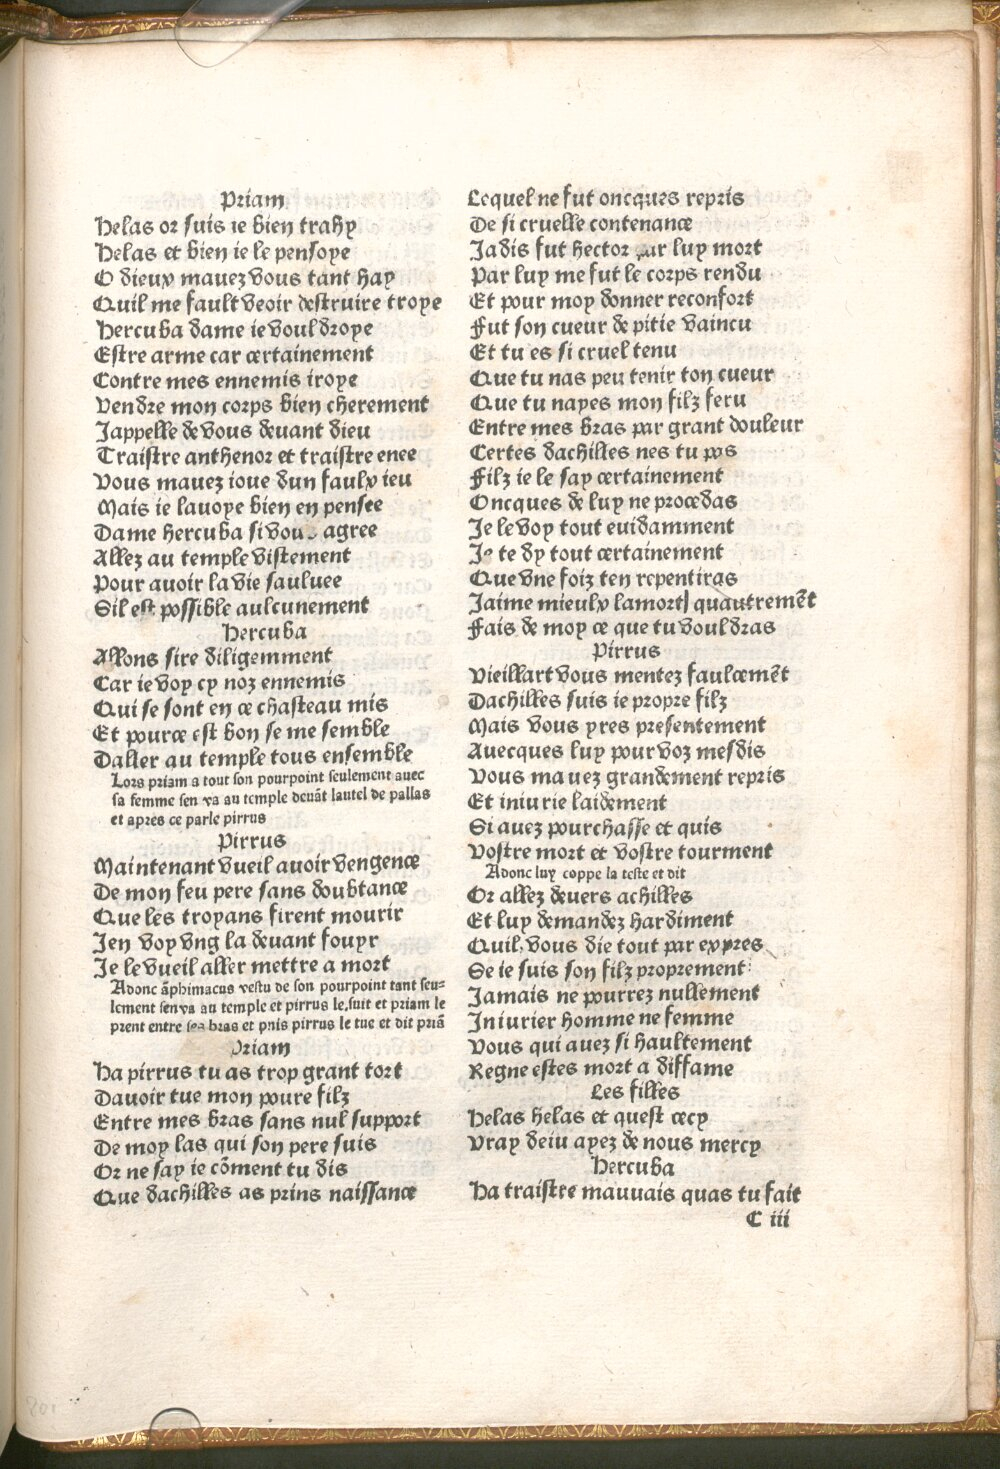 Priam
Helas or suis ie bien trahy
Helas et bien ie le pensoye
O dieux mauez vous tant hay
Quil me fault veoir destruire troye
Hercuba dame ie vouldroye
Estre arme car certainement
Contre mes ennemis iroye
Vendre mon corps bien cherement
Jappelle de vous deuant dieu
Traistre anthenor et traistre enee
Vous mauez ioue dun faulx ieu
Mais ie lauoye bien en pensee
Dame hercuba si vou agree
Allez au temple vistement
Pour auoir la vie sauluee
Sil est possible aulcunement
Hercuba
Allons sire diligemment
Car ie voy cy noz ennemis
Qui se sont en ce chasteau mis
Et pource est bon se me semble
Daller au temple tous ensemble
Lors priam a tout son pourpoint seulement auec
sa femme sen va au temple deuãt lautel de pallas
et apres ce parle pirrus
Pirrus
Maintenant vueil auoir vengence
De mon feu pere sans doubtance
Que les troyans firent mourir
Jen voy vng la deuant fouyr
Je le vueil aller mettre a mort
Adonc ãphimacus vestu de son pourpoint tant seu=
lement sen va au temple et pirrus le suit et priam le
prent entre ses bras et puis pirrus le tue et dit priã
Priam
Ha pirrus tu as trop grant tort
Dauoir tue mon poure filz
Entre mes bras sans nul support
De moy las qui son pere suis
Or ne say ie cõment tu dis
Que dachilles as prins naissance
Lequel ne fut oncques repris
De si cruelle contenance
Jadis fut hector par luy mort
Par luy me fut le corps rendu
Et pour moy donner reconfort
Fut son cueur de pitie vaincu
Et tu es si cruel tenu
Que tu nas peu tenir ton cueur
Que tu nayes mon filz feru
Entre mes bras par grant douleur
Certes dachilles nes tu pas
Filz ie le say certainement
Oncques de luy ne procedas
Je le voy tout euidamment
Je te dy tout certainement
Que vne foiz ten repentiras
Jaime mieulx lamort quautremẽt
Fais de moy ce que tu vouldras
Pirrus
Vieillart vous mentez faulcemẽt
Dachilles suis ie propre filz
Mais vous yres presentement
Auecques luy pour voz mesdis
Vous mauez grandement repris
Et iniurie laidement
Si auez pourchasse et quis
Vostre mort et vostre tourment
Adonc luy coppe la teste et dit
Or allez deuers achilles
Et luy demandez hardiment
Quil vous die tout par expres
Se ie suis son filz proprement
Jamais ne pourrez nullement
Iniurier homme ne femme
Vous qui auez si haultement
Regne estes mort a diffame
Les filles
Helas helas et quest cecy
Vray deiu ayez de nous mercy
Hercuba
Ha traistre mauuais quas tu fait
C iii